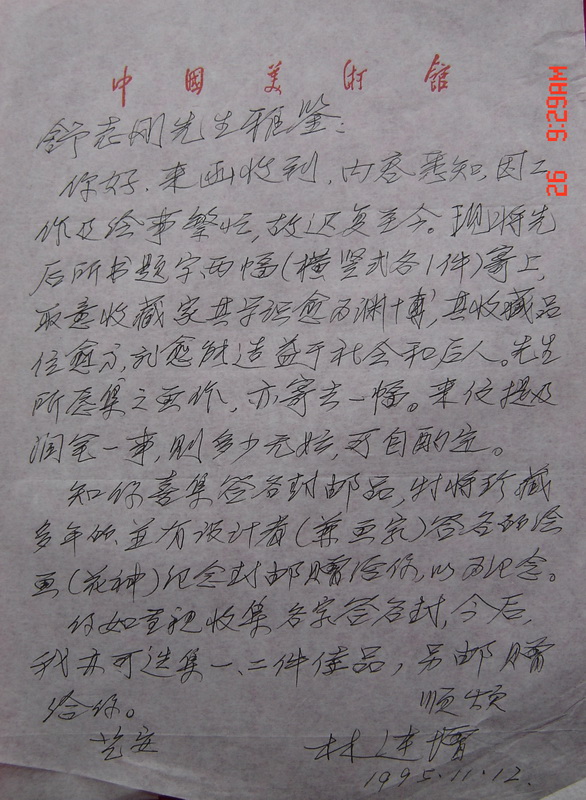 中國美術館
26 9:29AM
舒志刚先生雅鉴：
你好。来函收到，内容悉知，因工
作及绘事繁忙，故迟复至今。现将先
后所书题字两幅(横竖式各1件)寄上，
取意收藏家其学识愈为渊博，其收藏品
位愈高，则愈能造益于社会和后人。先生
所愿集之画作，亦寄去一幅。来信提及
润金一事，则多少无妨，可自酌定。
知你喜集签名封邮品，特将珍藏
多年的、并有设计者(兼画家)签名的绘
画(花种)纪念封邮赠给你，以为纪念。
你如重视收集名家签名封，今后，
我亦可选集一、二件佳品，另邮赠
给你。
顺颂
艺安
林连
1995.11.12.